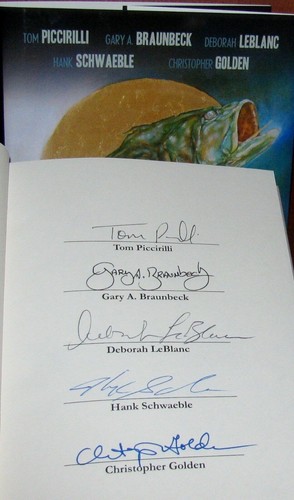 TOM PICCIRILLI GARY A. BRAUNBECK DEBORAH LEBLANC
HANK SCHWAEBLE CHRISTOPHER GOLDEN
Tom Piccirilli
Gary A. Braunbeck
Gary A. Braunbeck
Deborah LeBlanc
Deborah LeBlanc
Hank Schwaeble
Christopher Golden